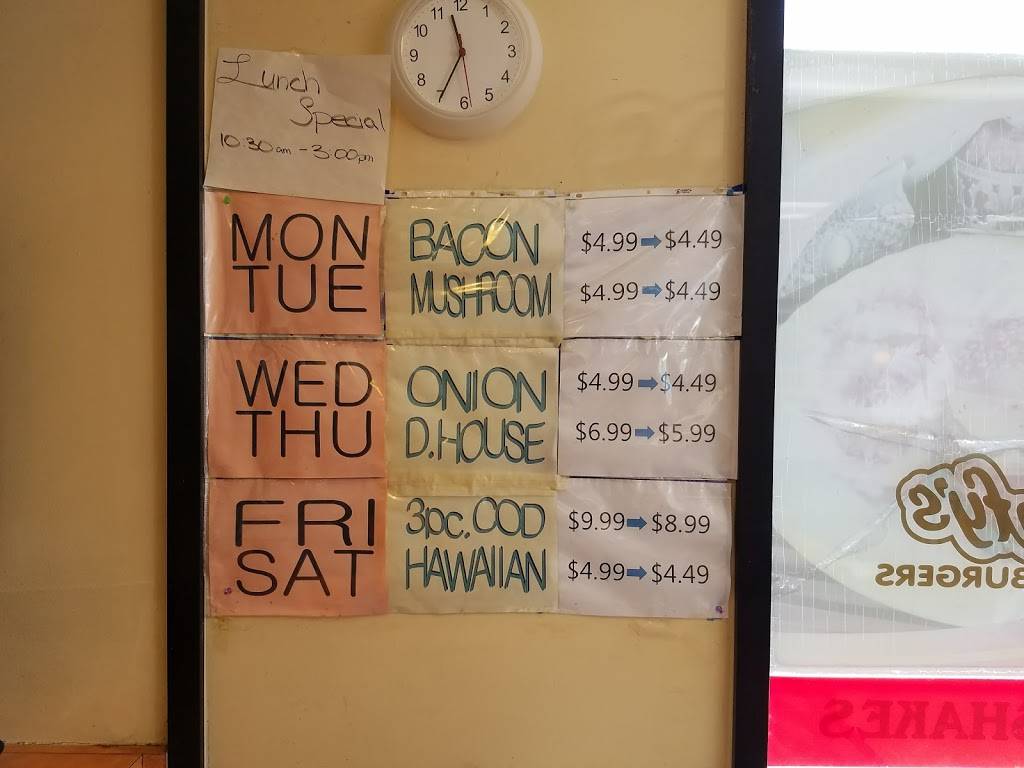 11 12 1
10 2
9 3
8 4
7 6 5
Lunch
Special
10:30am - 3:00pm
MON BACON $4.99 → $4.49
TUE MUSHROOM $4.99 → $4.49
WED ONION $4.99 → $4.49
THU D.HOUSE $6.99 → $5.99
FRI 3pc. COD $9.99 → $8.99
SAT HAWAIIAN $4.99 → $4.49
BURGERS
SHAKES